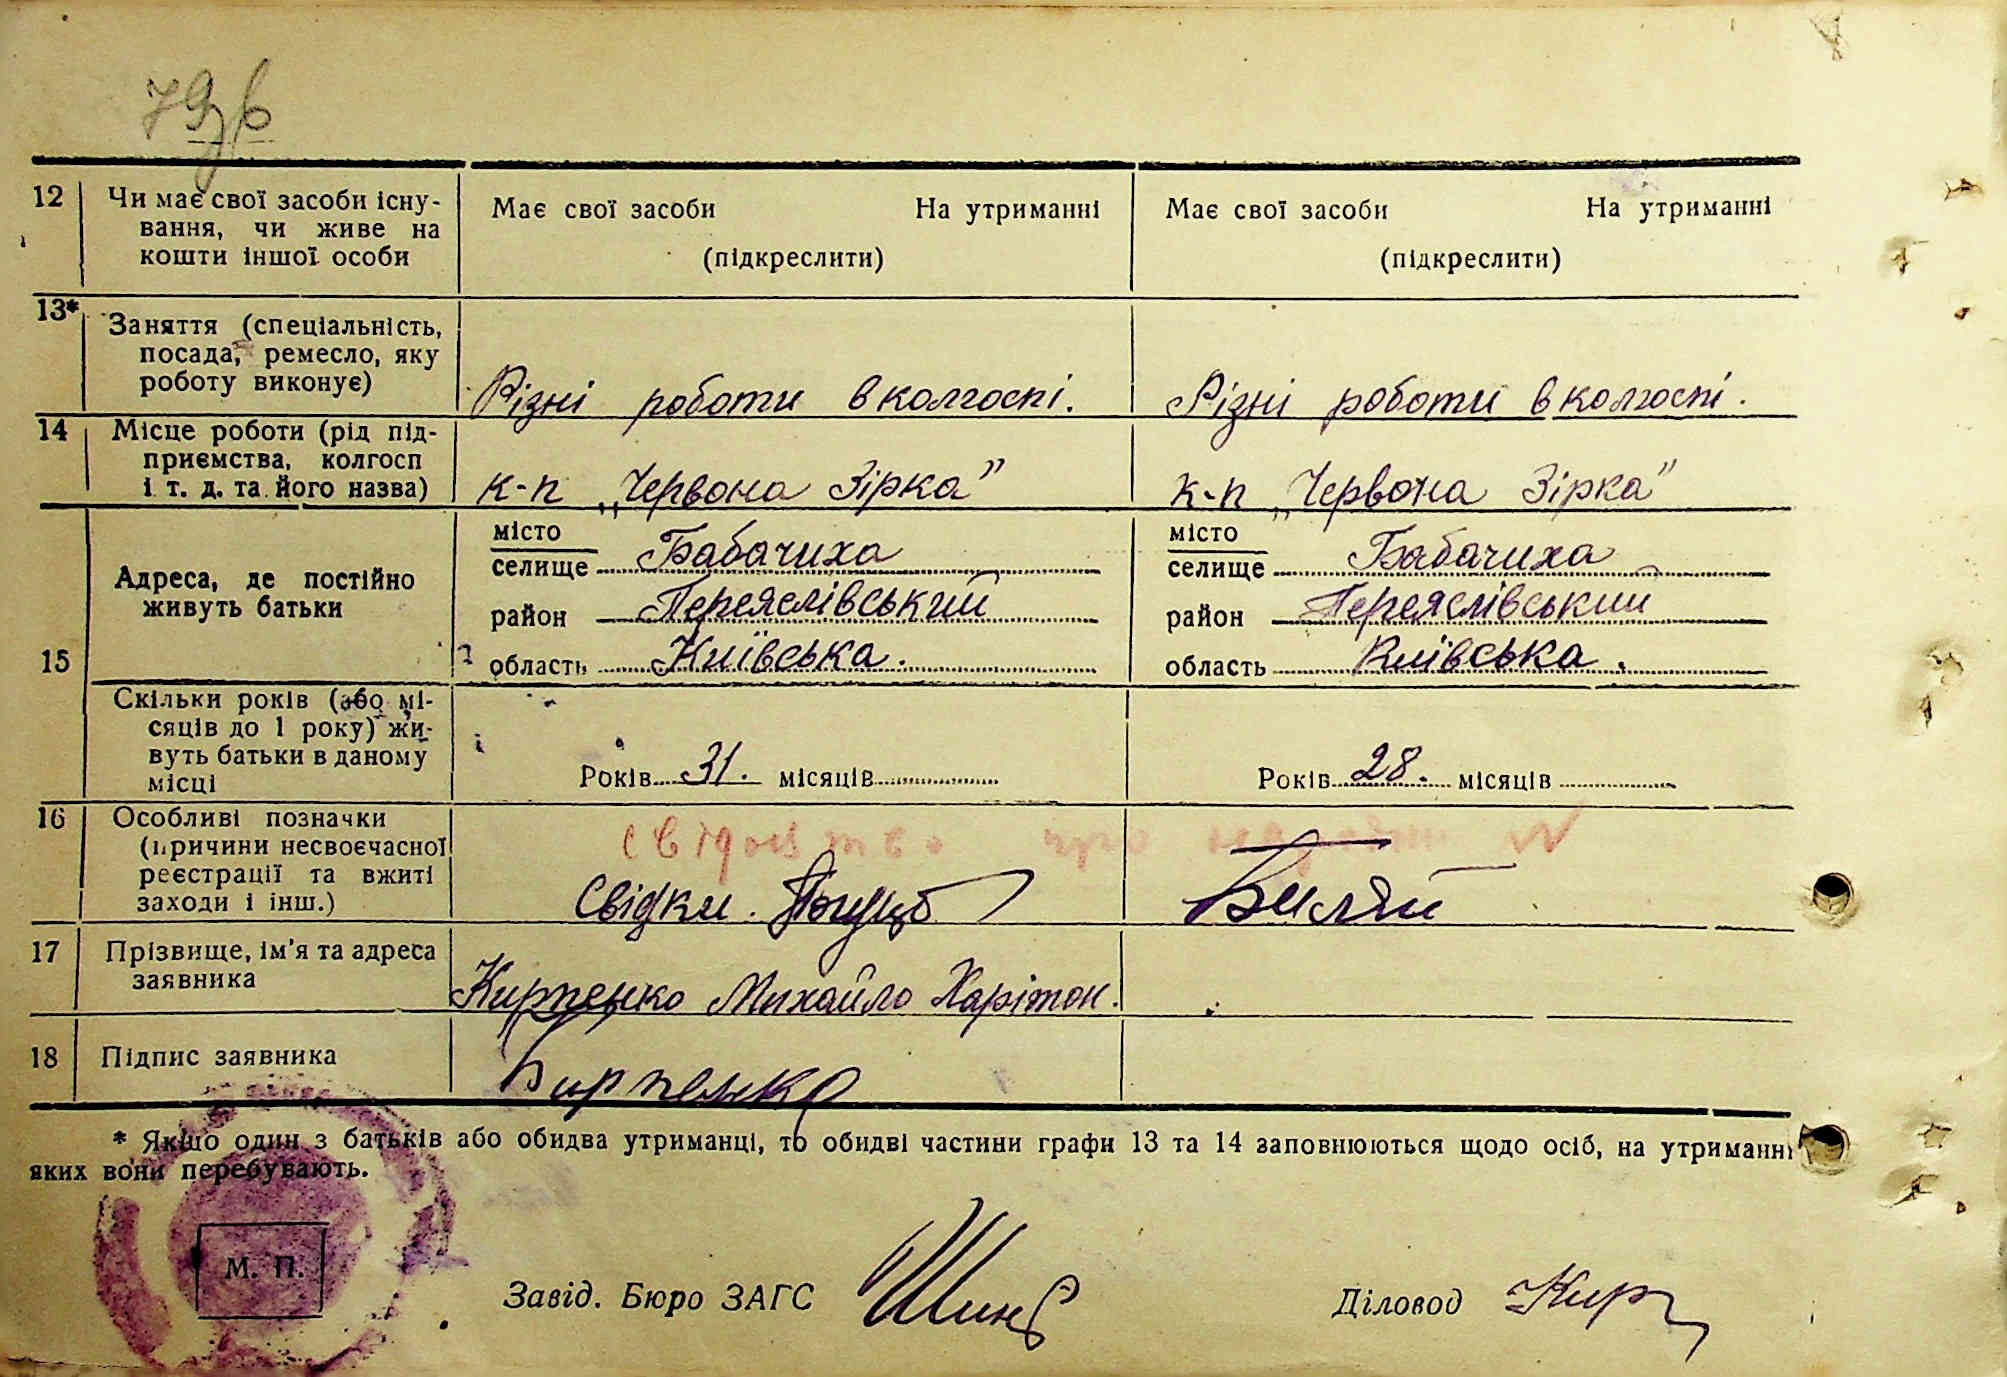 79 зв
12 Чи має свої засоби існу-
вання, чи живе на
кошти іншої особи
Має свої засоби На утриманні
(підкреслити)
Має свої засоби На утриманні
(підкреслити)
13* Заняття (спеціальність,
посада, ремесло, яку
роботу виконує)
Різні роботи в колгоспі.
Різні роботи в колгоспі.
14 Місце роботи (рід під-
приємства, колгосп
і т. д. та його назва)
к-п „Червона Зірка"
к-п „Червона Зірка"
15 Адреса, де постійно
живуть батьки
місто
селище Бабачиха
район Переяслівський
область Київська.
місто
селище Бабачиха
район Переяслівський
область Київська.
Скільки років (або мі-
сяців до 1 року) жи-
вуть батьки в даному
місці
Років 31. місяців
Років 28. місяців
16 Особливі позначки
(причини несвоєчасної
реєстрації та вжиті
заходи і інш.)
свідоцтво про
Свідки.
17 Прізвище, ім'я та адреса
заявника
Кирпенко Михайло Харітон.
18 Підпис заявника
Кирпенко
* Якщо один з батьків або обидва утриманці, то обидві частини графи 13 та 14 заповнюються щодо осіб, на утриманні
яких вони перебувають.
М. П.
Завід. Бюро ЗАГС
Діловод Кирп